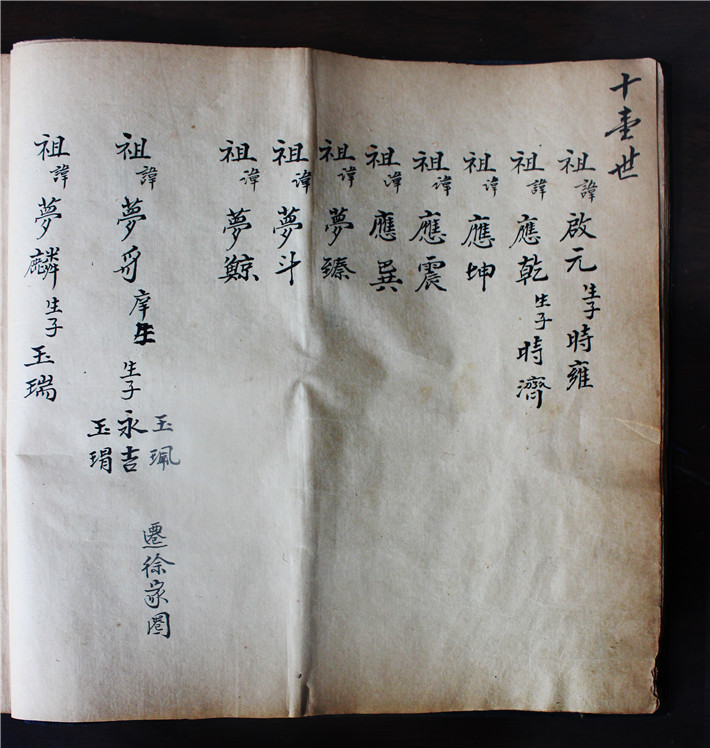 十壹世
祖諱啟元生子時雍
祖諱應乾生子時濟
祖諱應坤
祖諱應震
祖諱應巽
祖諱夢臻
祖諱夢斗
祖諱夢鯨
祖諱夢舟庠生生子
玉珮
永吉
玉珺
遷徐家圈
祖諱夢麟生子玉瑞